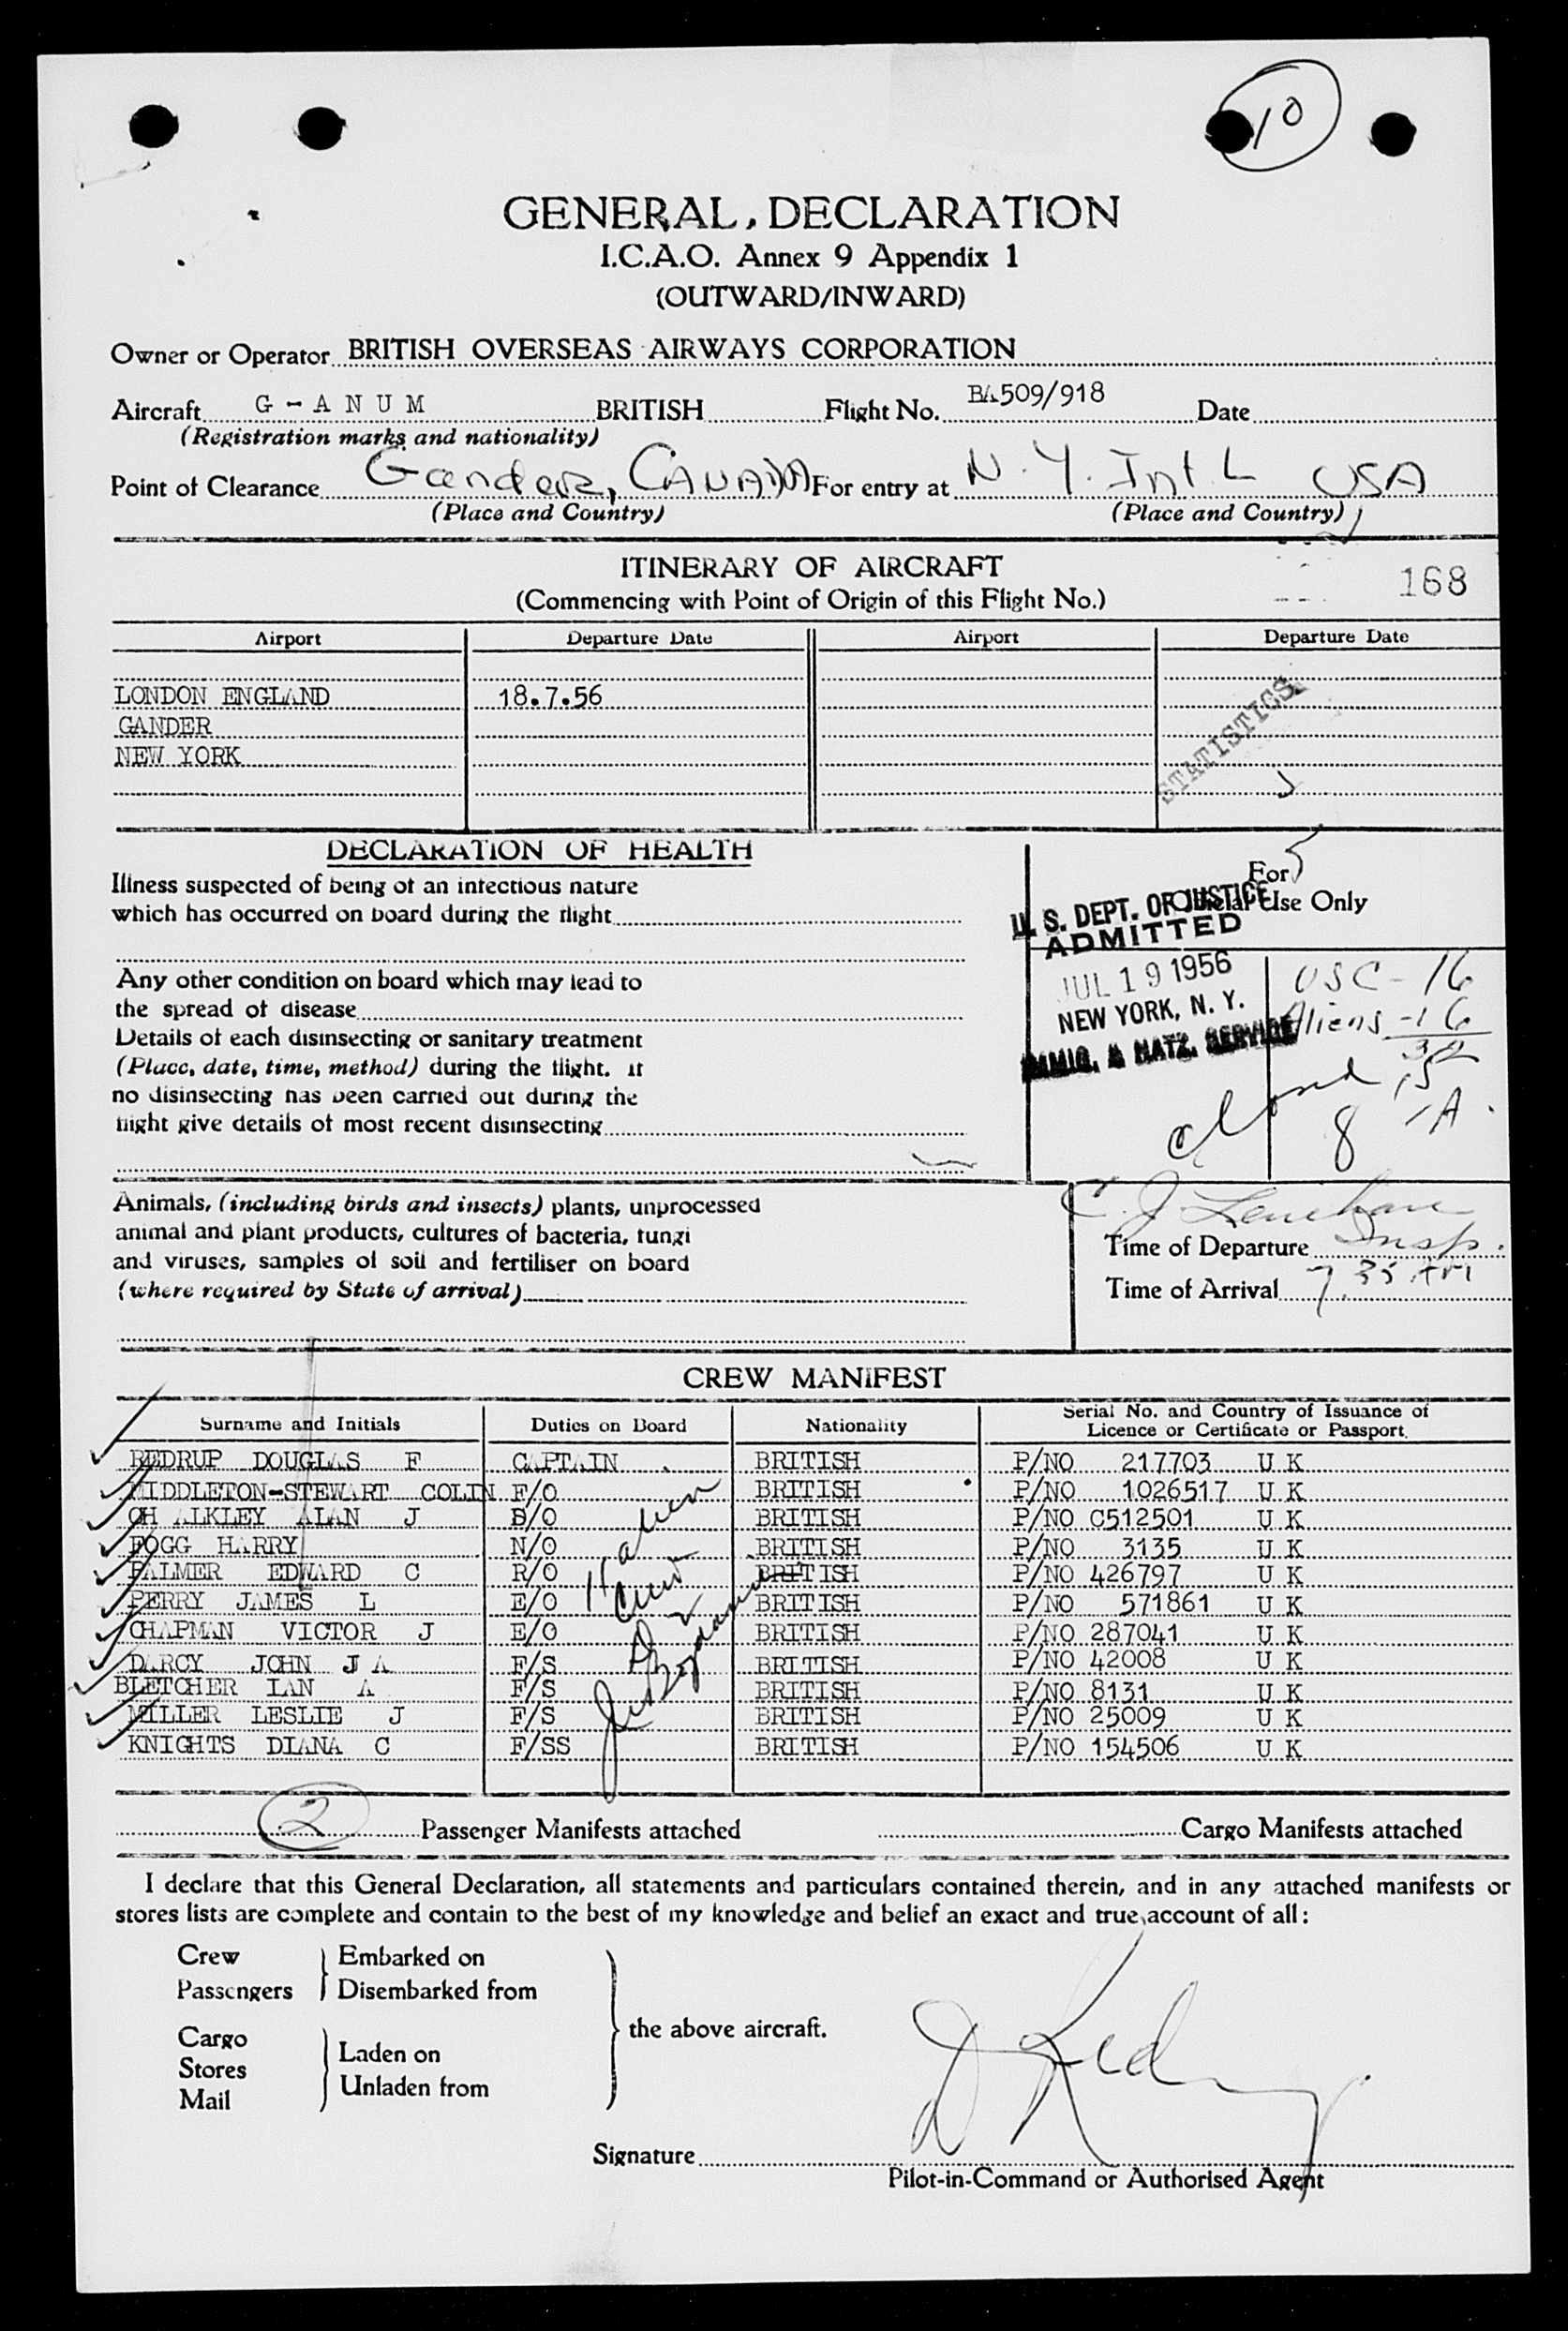 10
GENERAL, DECLARATION
I.C.A.O. Annex 9 Appendix 1
(OUTWARD/INWARD)
Owner or Operator BRITISH OVERSEAS AIRWAYS CORPORATION
Aircraft G - A N U M BRITISH Flight No. BA509/918 Date
(Registration marks and nationality)
Point of Clearance Gander, CANADA For entry at N.Y. Int'L USA
(Place and Country) (Place and Country)
ITINERARY OF AIRCRAFT
168
(Commencing with Point of Origin of this Flight No.)
Airport Departure Date Airport Departure Date
LONDON ENGLAND 18.7.56
GANDER
NEW YORK
STATISTICS
DECLARATION OF HEALTH
Illness suspected of being of an infectious nature
which has occurred on board during the flight
Any other condition on board which may lead to
the spread of disease
Details of each disinsecting or sanitary treatment
(Place, date, time, method) during the flight. If
no disinsecting has been carried out during the
flight give details of most recent disinsecting
For 5
Official Use Only
U. S. DEPT. OF JUSTICE
ADMITTED
JUL 19 1956
NEW YORK, N. Y.
IMMIG. & NATZ. SERVICE
USC - 16
Aliens - 16
32
8
Animals, (including birds and insects) plants, unprocessed
animal and plant products, cultures of bacteria, fungi
and viruses, samples of soil and fertiliser on board
(where required by State of arrival)
C. J. Lenehan
Time of Departure Insp.
Time of Arrival 7.35 AM
CREW MANIFEST
Surname and Initials Duties on Board Nationality Serial No. and Country of Issuance of
Licence or Certificate or Passport.
REDRUP DOUGLAS F CAPTAIN BRITISH P/NO 217703 U K
MIDDLETON-STEWART COLIN F/O BRITISH P/NO 1026517 U K
CH ALKLEY ALAN J B/O BRITISH P/NO C512501 U K
FOGG HARRY N/O BRITISH P/NO 3135 U K
PALMER EDWARD C R/O BRITISH P/NO 426797 U K
PERRY JAMES L E/O BRITISH P/NO 571861 U K
CHAPMAN VICTOR J E/O BRITISH P/NO 287041 U K
DARCY JOHN J A F/S BRITISH P/NO 42008 U K
BLETCHER IAN A F/S BRITISH P/NO 8131 U K
MILLER LESLIE J F/S BRITISH P/NO 25009 U K
KNIGHTS DIANA C F/SS BRITISH P/NO 154506 U K
11 alien
crew
2 Passenger Manifests attached Cargo Manifests attached
I declare that this General Declaration, all statements and particulars contained therein, and in any attached manifests or
stores lists are complete and contain to the best of my knowledge and belief an exact and true account of all:
Crew Embarked on
Passengers Disembarked from
the above aircraft.
Cargo
Stores Laden on
Mail Unladen from
Signature
Pilot-in-Command or Authorised Agent